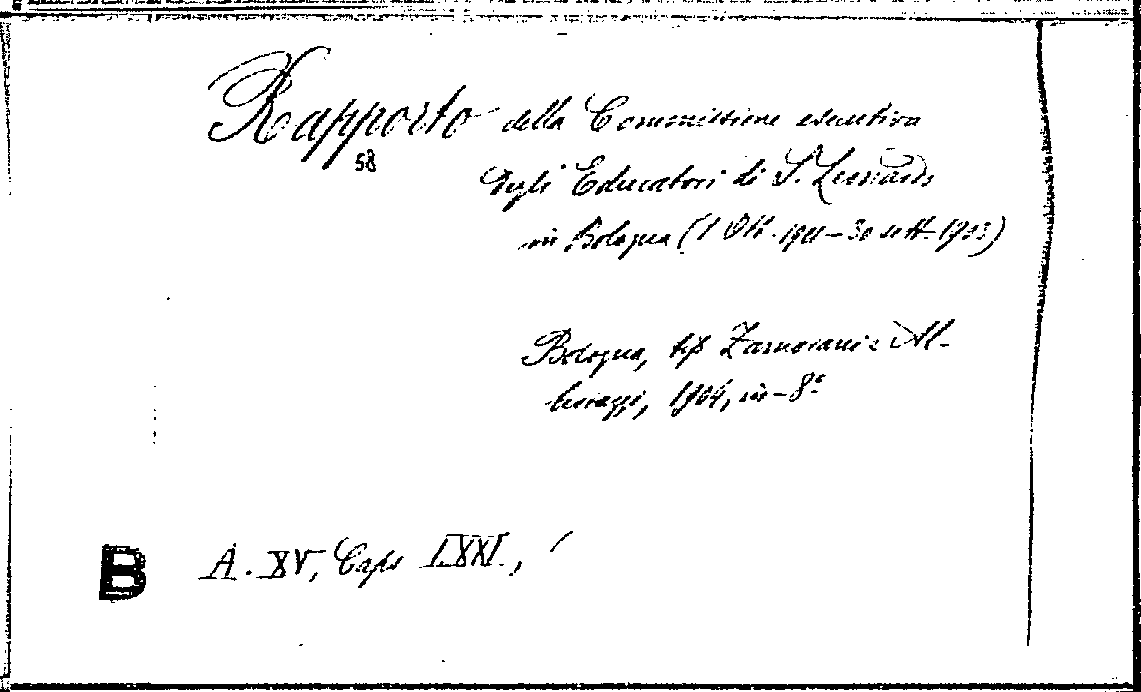 Rapporto della Commissione esecutiva
58
degli Educatori di S. Leonardo
in Bologna (1 Ott. 1901 - 30 sett. 1903)
Bologna, tip Zamorani e Al-
bertazzi, 1904, in-8°
B A. XV, Caps LXXI,